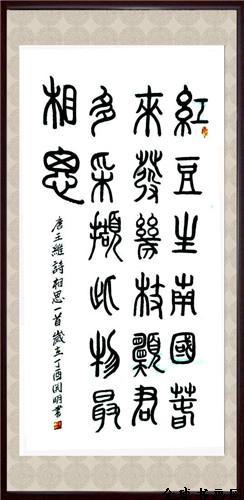 紅豆生南國春
來發幾枝願君
多采擷此物最
相思
唐王維詩相思一首歲在丁酉閔明書